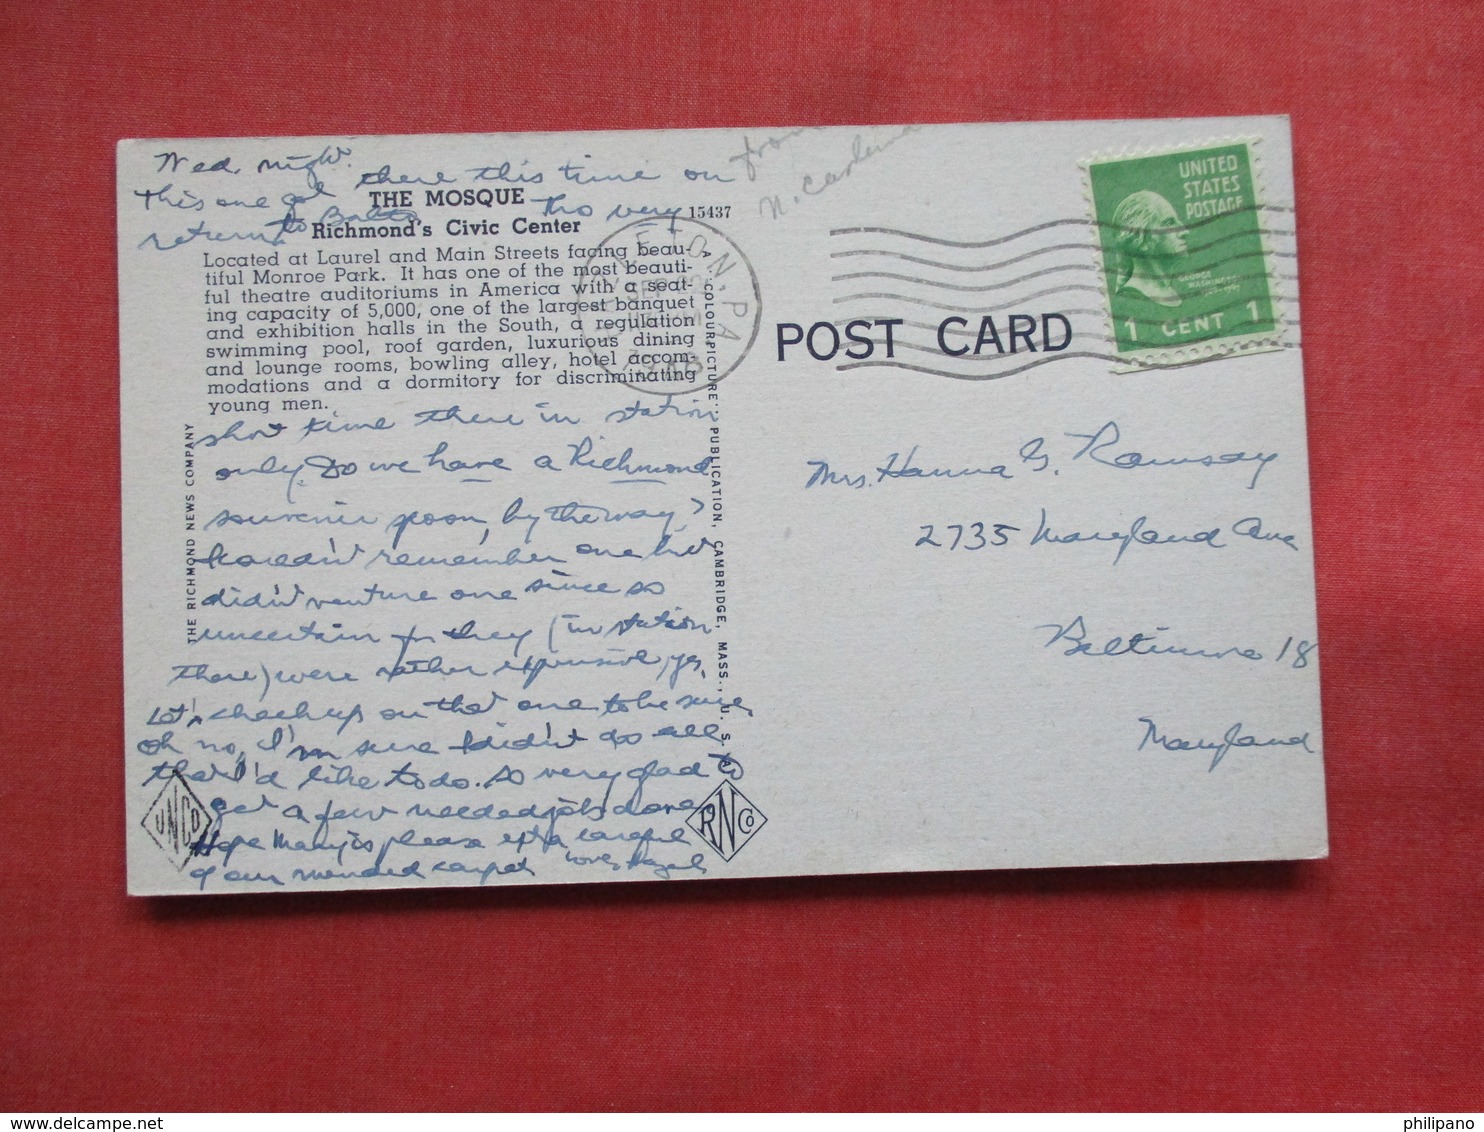 Wed. night.
This one got there this time on
return to Balto tho very
from
N. Carolina
THE MOSQUE
15437
Richmond's Civic Center
Located at Laurel and Main Streets facing beau-
tiful Monroe Park. It has one of the most beauti-
ful theatre auditoriums in America with a seat-
ing capacity of 5,000, one of the largest banquet
and exhibition halls in the South, a regulation
swimming pool, roof garden, luxurious dining
and lounge rooms, bowling alley, hotel accom-
modations and a dormitory for discriminating
young men.
short time there in station
only. Do we have a Richmond
souvenir spoon, by the way?
I couldn't remember one but
didn't venture one since so
uncertain & they (in station
there) were rather expensive, yes.
Let's check up on that one to be sure
Oh no, I'm sure I didn't do all
that I'd like to do. So very glad to
get a few needed jobs done
Hope Mary is please extra careful
of our mended carpet Love, Hazel
THE RICHMOND NEWS COMPANY
A "COLOURPICTURE" PUBLICATION, CAMBRIDGE, MASS., U. S. A.
RNCo
TON, PA
SEP 22
POST CARD
UNITED
STATES
POSTAGE
GEORGE
WASHINGTON
1 CENT 1
Mrs. Hanna G. Ramsay
2735 Maryland Ave
Baltimore 18
Maryland
philipano